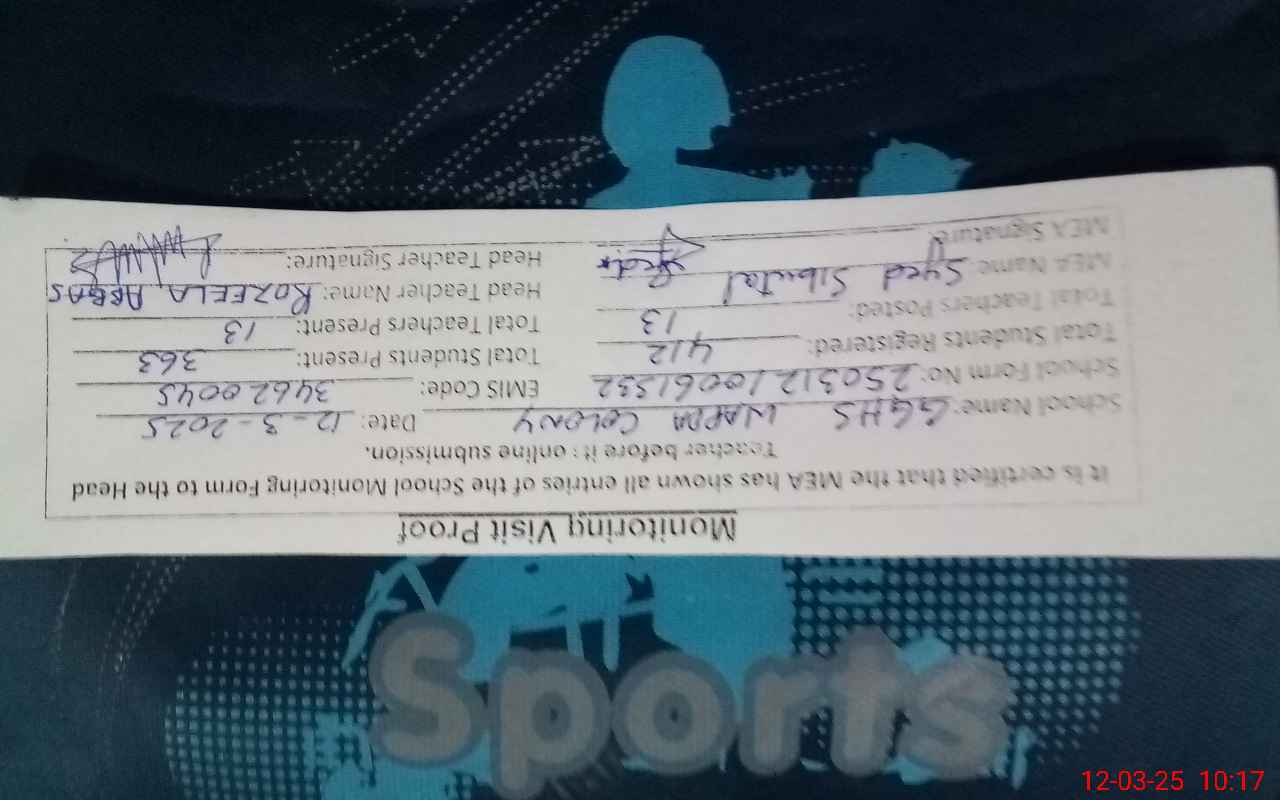 Monitoring Visit Proof
It is certified that the MEA has shown all entries of the School Monitoring Form to the Head
Teacher before it : online submission.
School Name: GGHS WAPDA COLONY Date: 12-3-2025
School Form No: 25031210061532 EMIS Code: 34620045
Total Students Registered: 412 Total Students Present: 363
Total Teachers Posted: 13 Total Teachers Present: 13
MEA Name: Syed Sibutal Head Teacher Name: ROZEELA ABBAS
MEA Signature: Head Teacher Signature:
Sports
12-03-25 10:17